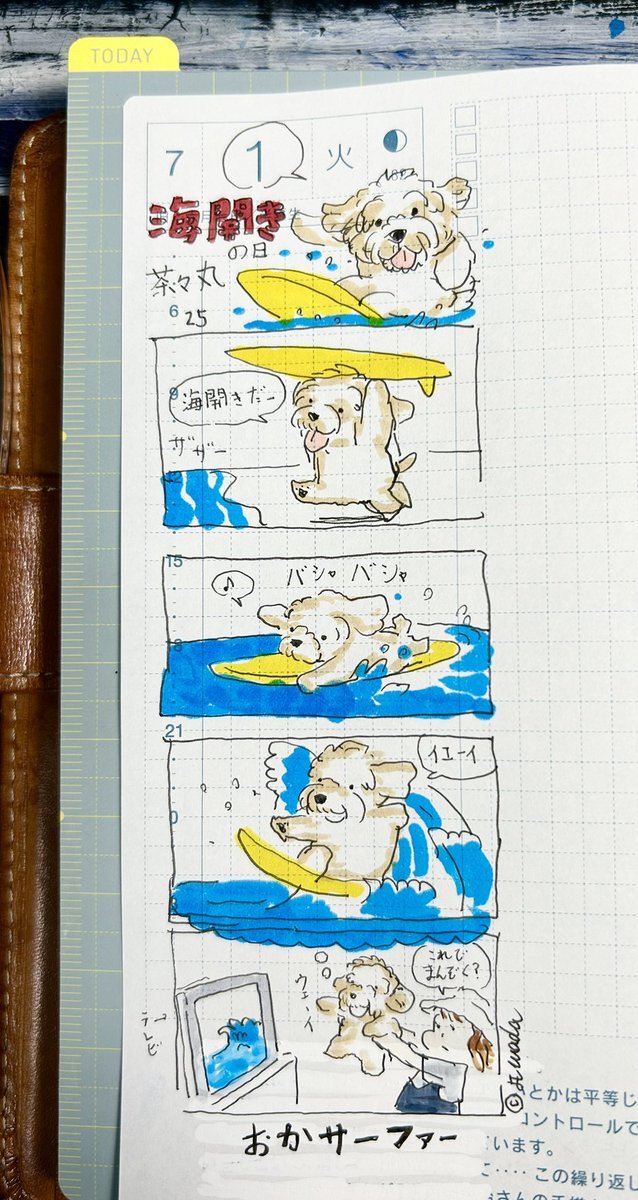 TODAY
7 1 火
海開き
の日
茶々丸
25
6
9
海開きだー
ザザー
15
♪
バシャ バシャ
18
21
イエーイ
0
これで
まんぞく?
ウェーイ
テレビ
© H.wada
おかサーファー
とかは平等じ
コントロールで
います。
こ‥‥ この繰り返し